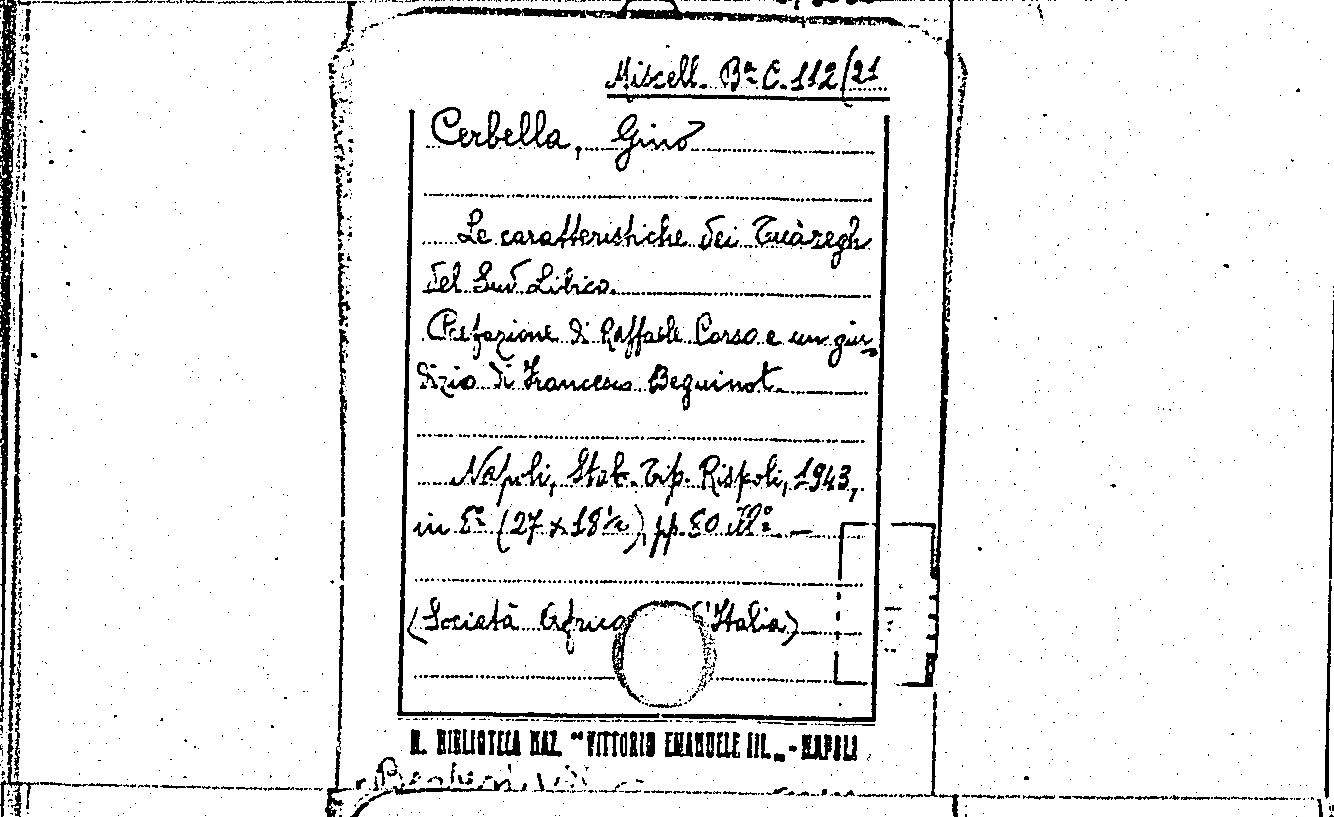 Miscell. Bª C. 112/21
Cerbella, Gino
Le caratteristiche dei Tuàregh
del Sud Libico.
Prefazione di Raffaele Corso e un giu-
dizio di Francesco Beguinot.
Napoli, Stab. Tip. Rispoli, 1943,
in 8º (27 x 18½), pp. 80 Illº. —
(Società Africa d'Italia)
R. BIBLIOTECA NAZ. "VITTORIO EMANUELE III„ - NAPOLI